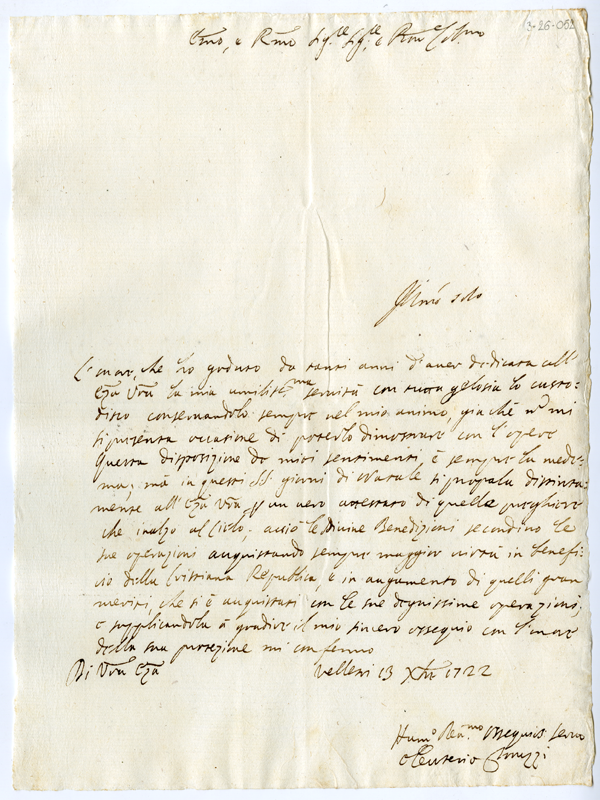 3-26-062
Emo, e Rmo Sig.re Sig.re e Pron.e Col.mo
solo
L'onor, che ho goduto da tanti anni d'aver dedicata all'
Eza Vra la mia umilis.ma servitù con tutta gelosia lo custo-
disco conservandolo sempre nel mio animo, già chè nō mi
si presenta occasione di poterlo dimostrare con l'opere
Questa disposizione de miei sentimenti è sempre la mede-
ma; mà in questi SS. giorni di Natale si propala distinta-
mente all'Eza Vra un vero attestato di quelle preghiere
che inalzo al Cielo, acciò le Divine Benedizioni secondino le
sue operazioni acquistando sempre maggior virtù in benefi-
cio della Cristiana Republica, e in augumento di quelli gran
meriti, che si è acquistati con le sue degnissime operazioni,
e supplicandola à gradire il mio sincero ossequio con l'onore
della sua protezione mi confermo
Di Vra Eza Velletri 13 Xbre 1722
Hum.o Dev.mo Ossequios Servo